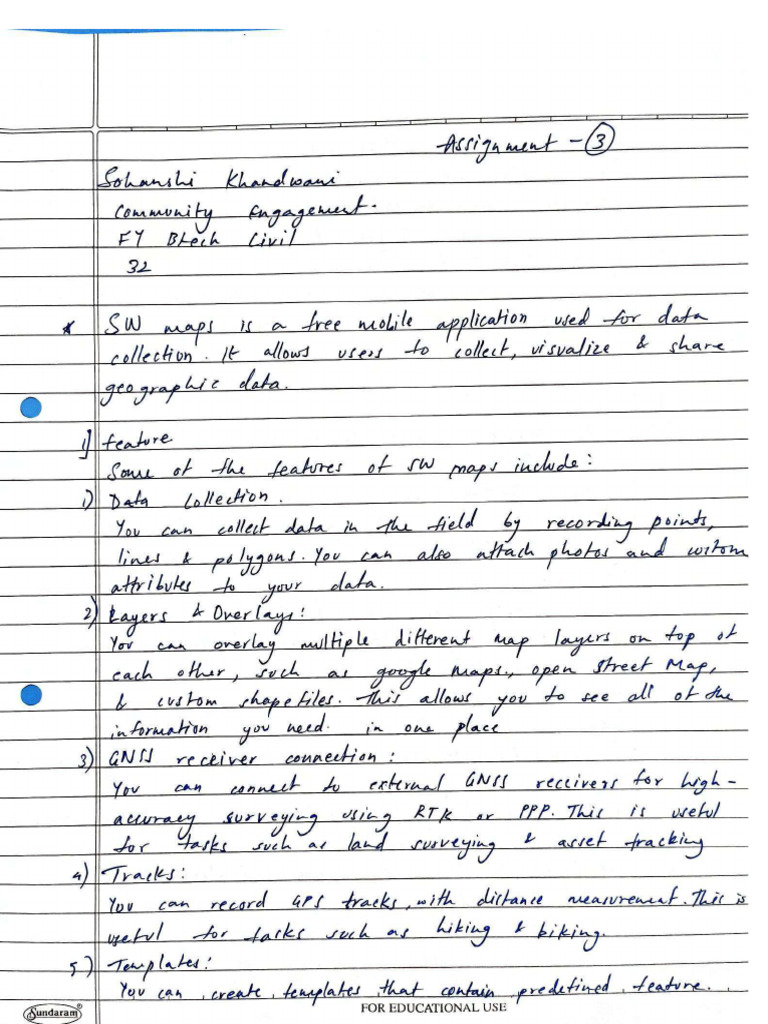 Assignment - 3
Sohanshi Khandwani
Community Engagement.
FY Btech Civil
32
* SW maps is a free mobile application used for data
collection. It allows users to collect, visualize & share
geographic data.
1] feature
Some of the features of SW maps include:
1) Data Collection.
You can collect data in the field by recording points,
lines & polygons. You can also attach photos and custom
attributes to your data.
2) Layers & Overlays:
You can overlay multiple different map layers on top of
each other, such as google maps., open street Map,
& custom shapefiles. This allows you to see all of the
information you need. in one place
3) GNSS receiver connection:
You can connect to external GNSS receivers for high-
accuracy surveying using RTK or PPP. This is useful
for tasks such as land surveying & asset tracking
4) Tracks:
You can record GPS tracks, with distance measurement. This is
useful for tasks such as hiking & biking.
5) Templates:
You can create templates that contain predefined feature.
Sundaram®
FOR EDUCATIONAL USE